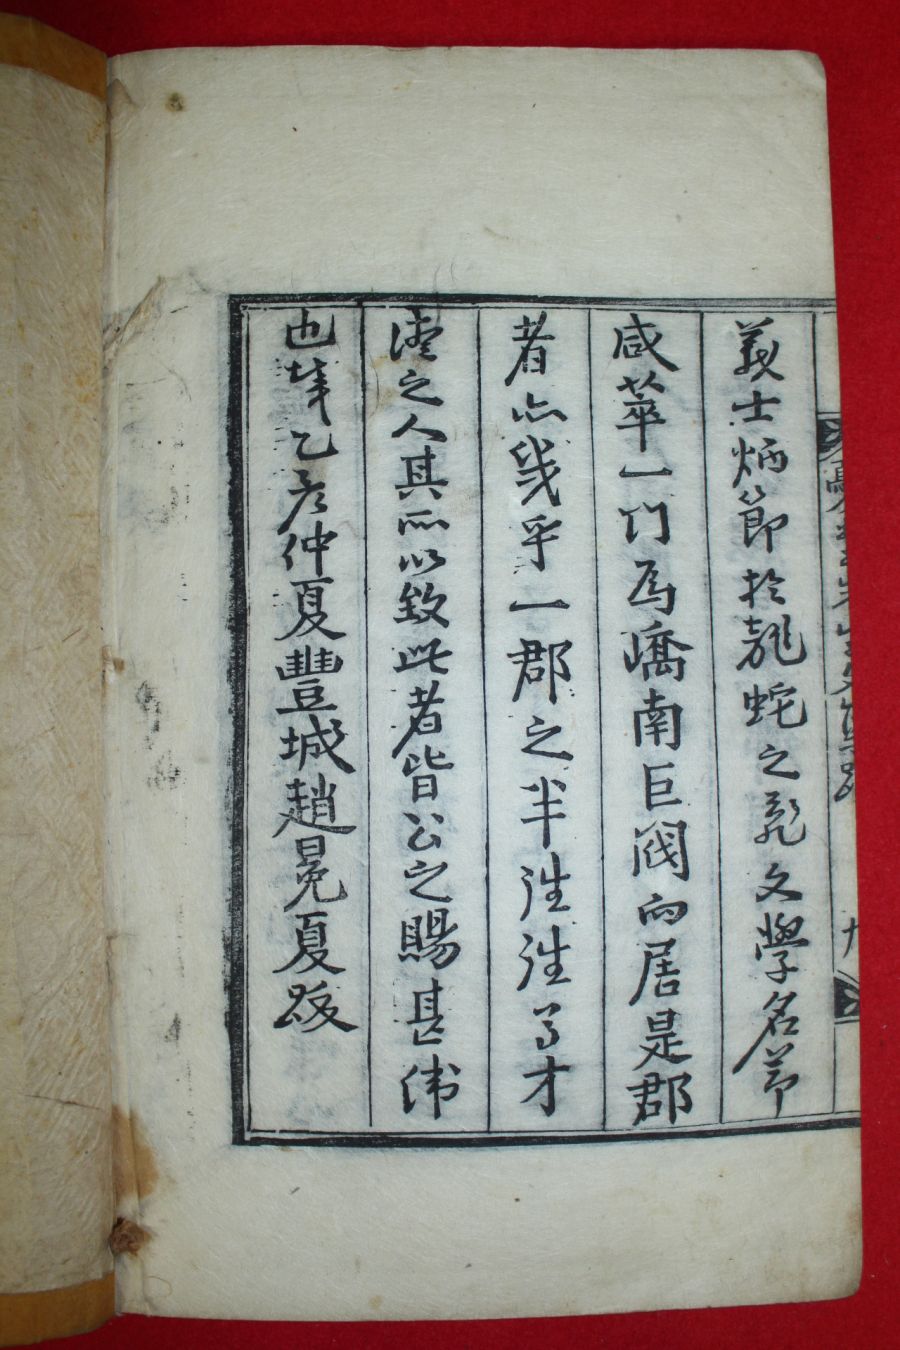 義士炳節於龍蛇之亂文學名節
咸萃一門爲嶠南巨閥而居是郡
者亦幾乎一郡之半往往多才
之人其所以致此者皆公之賜甚偉
也乙彦仲夏豐城趙冕夏跋